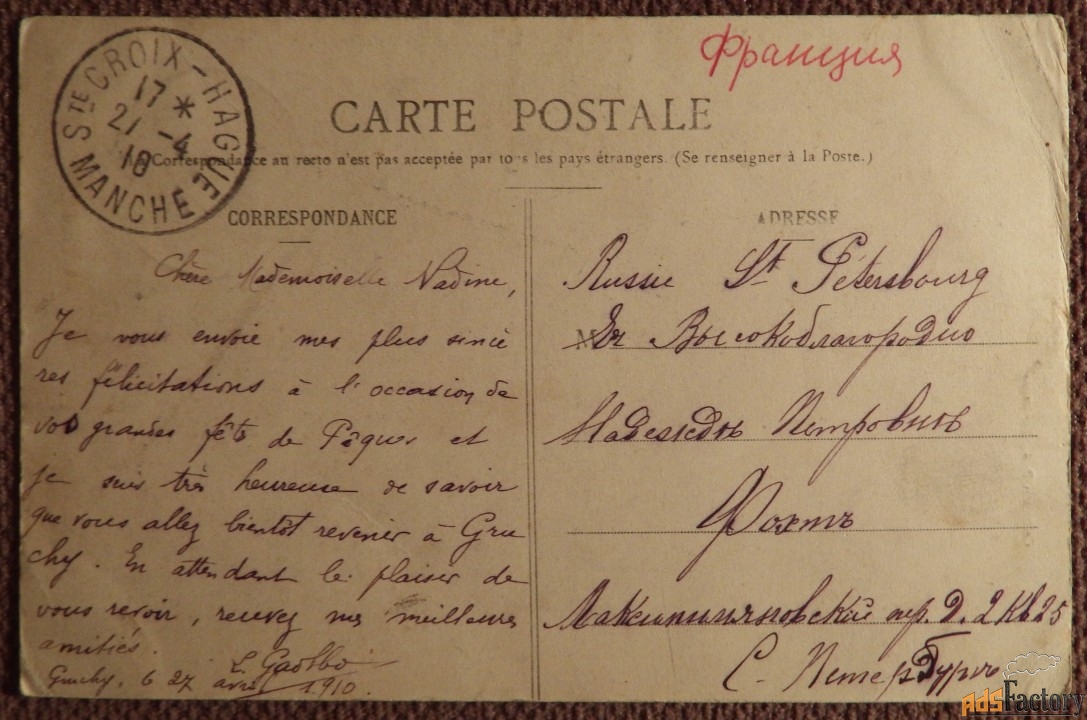 Франция
STE CROIX-HAGUE
17 *
21 -4
10
MANCHE
CARTE POSTALE
La Correspondance au recto n'est pas acceptée par tous les pays étrangers. (Se renseigner à la Poste.)
CORRESPONDANCE
Chère Mademoiselle Nadine,
Je vous envoie mes plus sincè
res félicitations à l'occasion de
vos grandes fêts de Pâques et
je suis très heureuse de savoir
que vous allez bientôt revenir à Gru
chy. En attendant le plaisir de
vous revoir, recevez mes meilleures
amitiés.
Gruchy,
avril 1910.
ADRESSE
Russie St Pétersbourg
Ея Высокоблагородию
Надеждѣ Петровнѣ
Фохтъ
Максимилиановский пер. Д. 2 кв 25
С. Петербургъ
AdsFactory